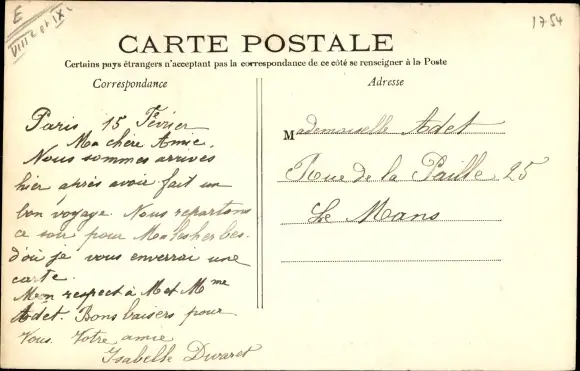 E
VIIIe et IXe
1754
CARTE POSTALE
Certains pays étrangers n'acceptant pas la correspondance de ce côté se renseigner à la Poste
Correspondance
Adresse
Paris 15 Février
Ma chère Amie.
Nous sommes arrivés
hier après avoir fait un
bon voyage. Nous repartons
ce soir pour Malesherbes.
d'où je vous enverrai une
carte.
Mon respect à M et Mme
Adet. Bons baisers pour
Vous. Votre amie
Isabelle
Mademoiselle Adet
Rue de la Paille 25
Le Mans